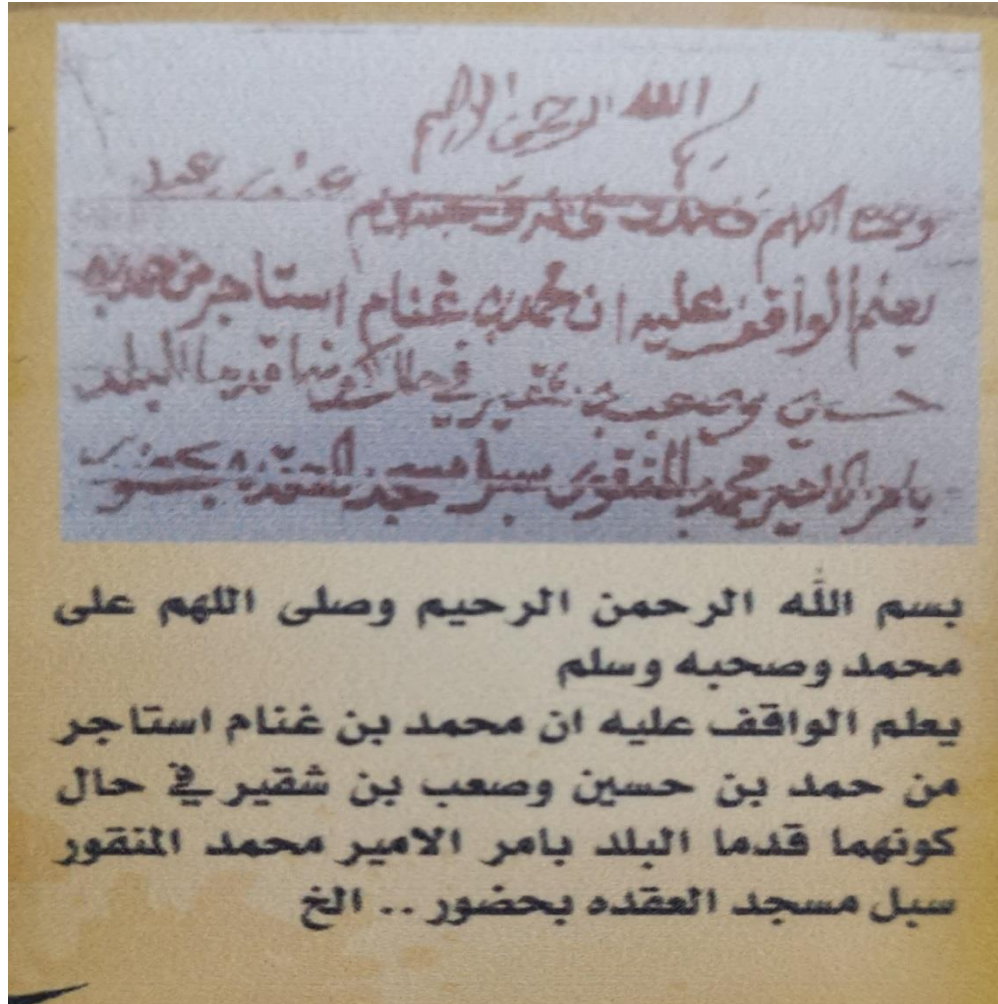 الله الرحمن الرحيم
يعلم الواقف عليه ان محمد بن غنام استاجر من حمد بن
حسين وصعب بن شقير في حال كونهما قدما البلد
بامر الامير محمد المنقور سبل مسجد العقده بحضور
بسم الله الرحمن الرحيم وصلى اللهم على
محمد وصحبه وسلم
يعلم الواقف عليه ان محمد بن غنام استاجر
من حمد بن حسين وصعب بن شقير في حال
كونهما قدما البلد بامر الامير محمد المنقور
سبل مسجد العقده بحضور .. الخ